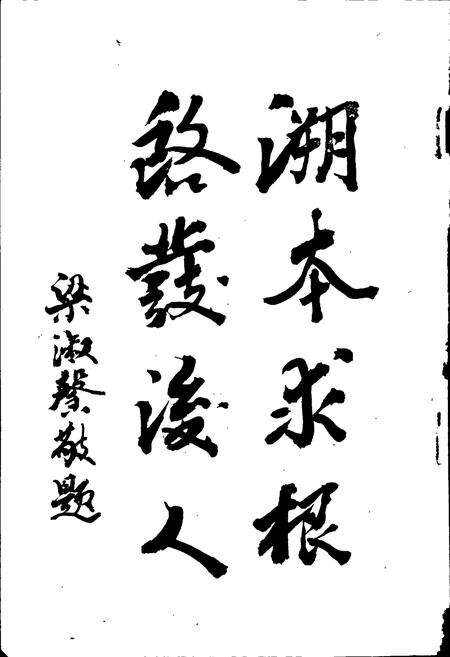 溯本求根
啓發後人
梁淑馨敬题